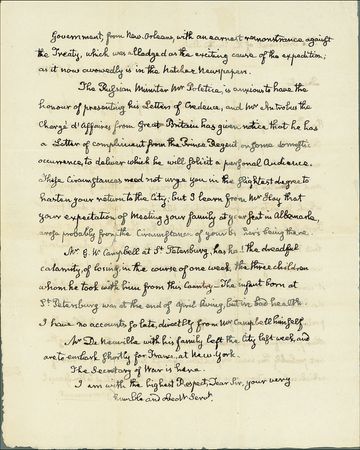 Government, from New Orleans, with an earnest remonstrance against
the Treaty, which was alledged as the exciting cause of the expedition;
as it now avowedly is in the Natchez Newspaper.
The Russian Minister Mr Poletica, is anxious to have the
honour of presenting his Letters of Credence, and Mr Antrobus the
Chargé d'Affaires from Great Britain has given notice that he has
a Letter of compliment from the Prince Regent, on some domestic
occurrence, to deliver which he will solicit a personal Audience.
These circumstances need not urge you in the slightest degree to
hasten your return to the City; but I learn from Mr Hay that
your expectation of meeting your family at your seat in Albemarle,
arose probably from the Circumstance of your being there.
Mr G. W. Campbell at St Petersburg, has had the dreadful
calamity of losing in the course of one week, the three children
whom he took with him from this Country. The infant born at
St Petersburg was at the end of April living, but in bad health.
I have no accounts so late, directly from Mr Campbell himself.
Mr De Neuville with his family left the City last week, and
are to embark shortly for France, at New-York.
The Secretary of War is here.
I am with the highest Respect, Dear Sir, your very
humble and Obedt Servt.